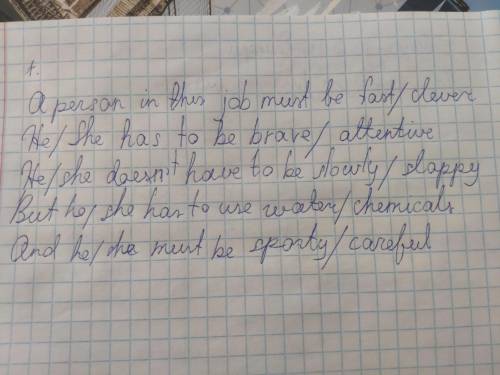 1.
A person in this job must be fast/clever
He/she has to be brave/attentive
He/she doesn't have to be slowly/sloppy
But he/she has to use water/chemicals
And he/she must be sporty/careful